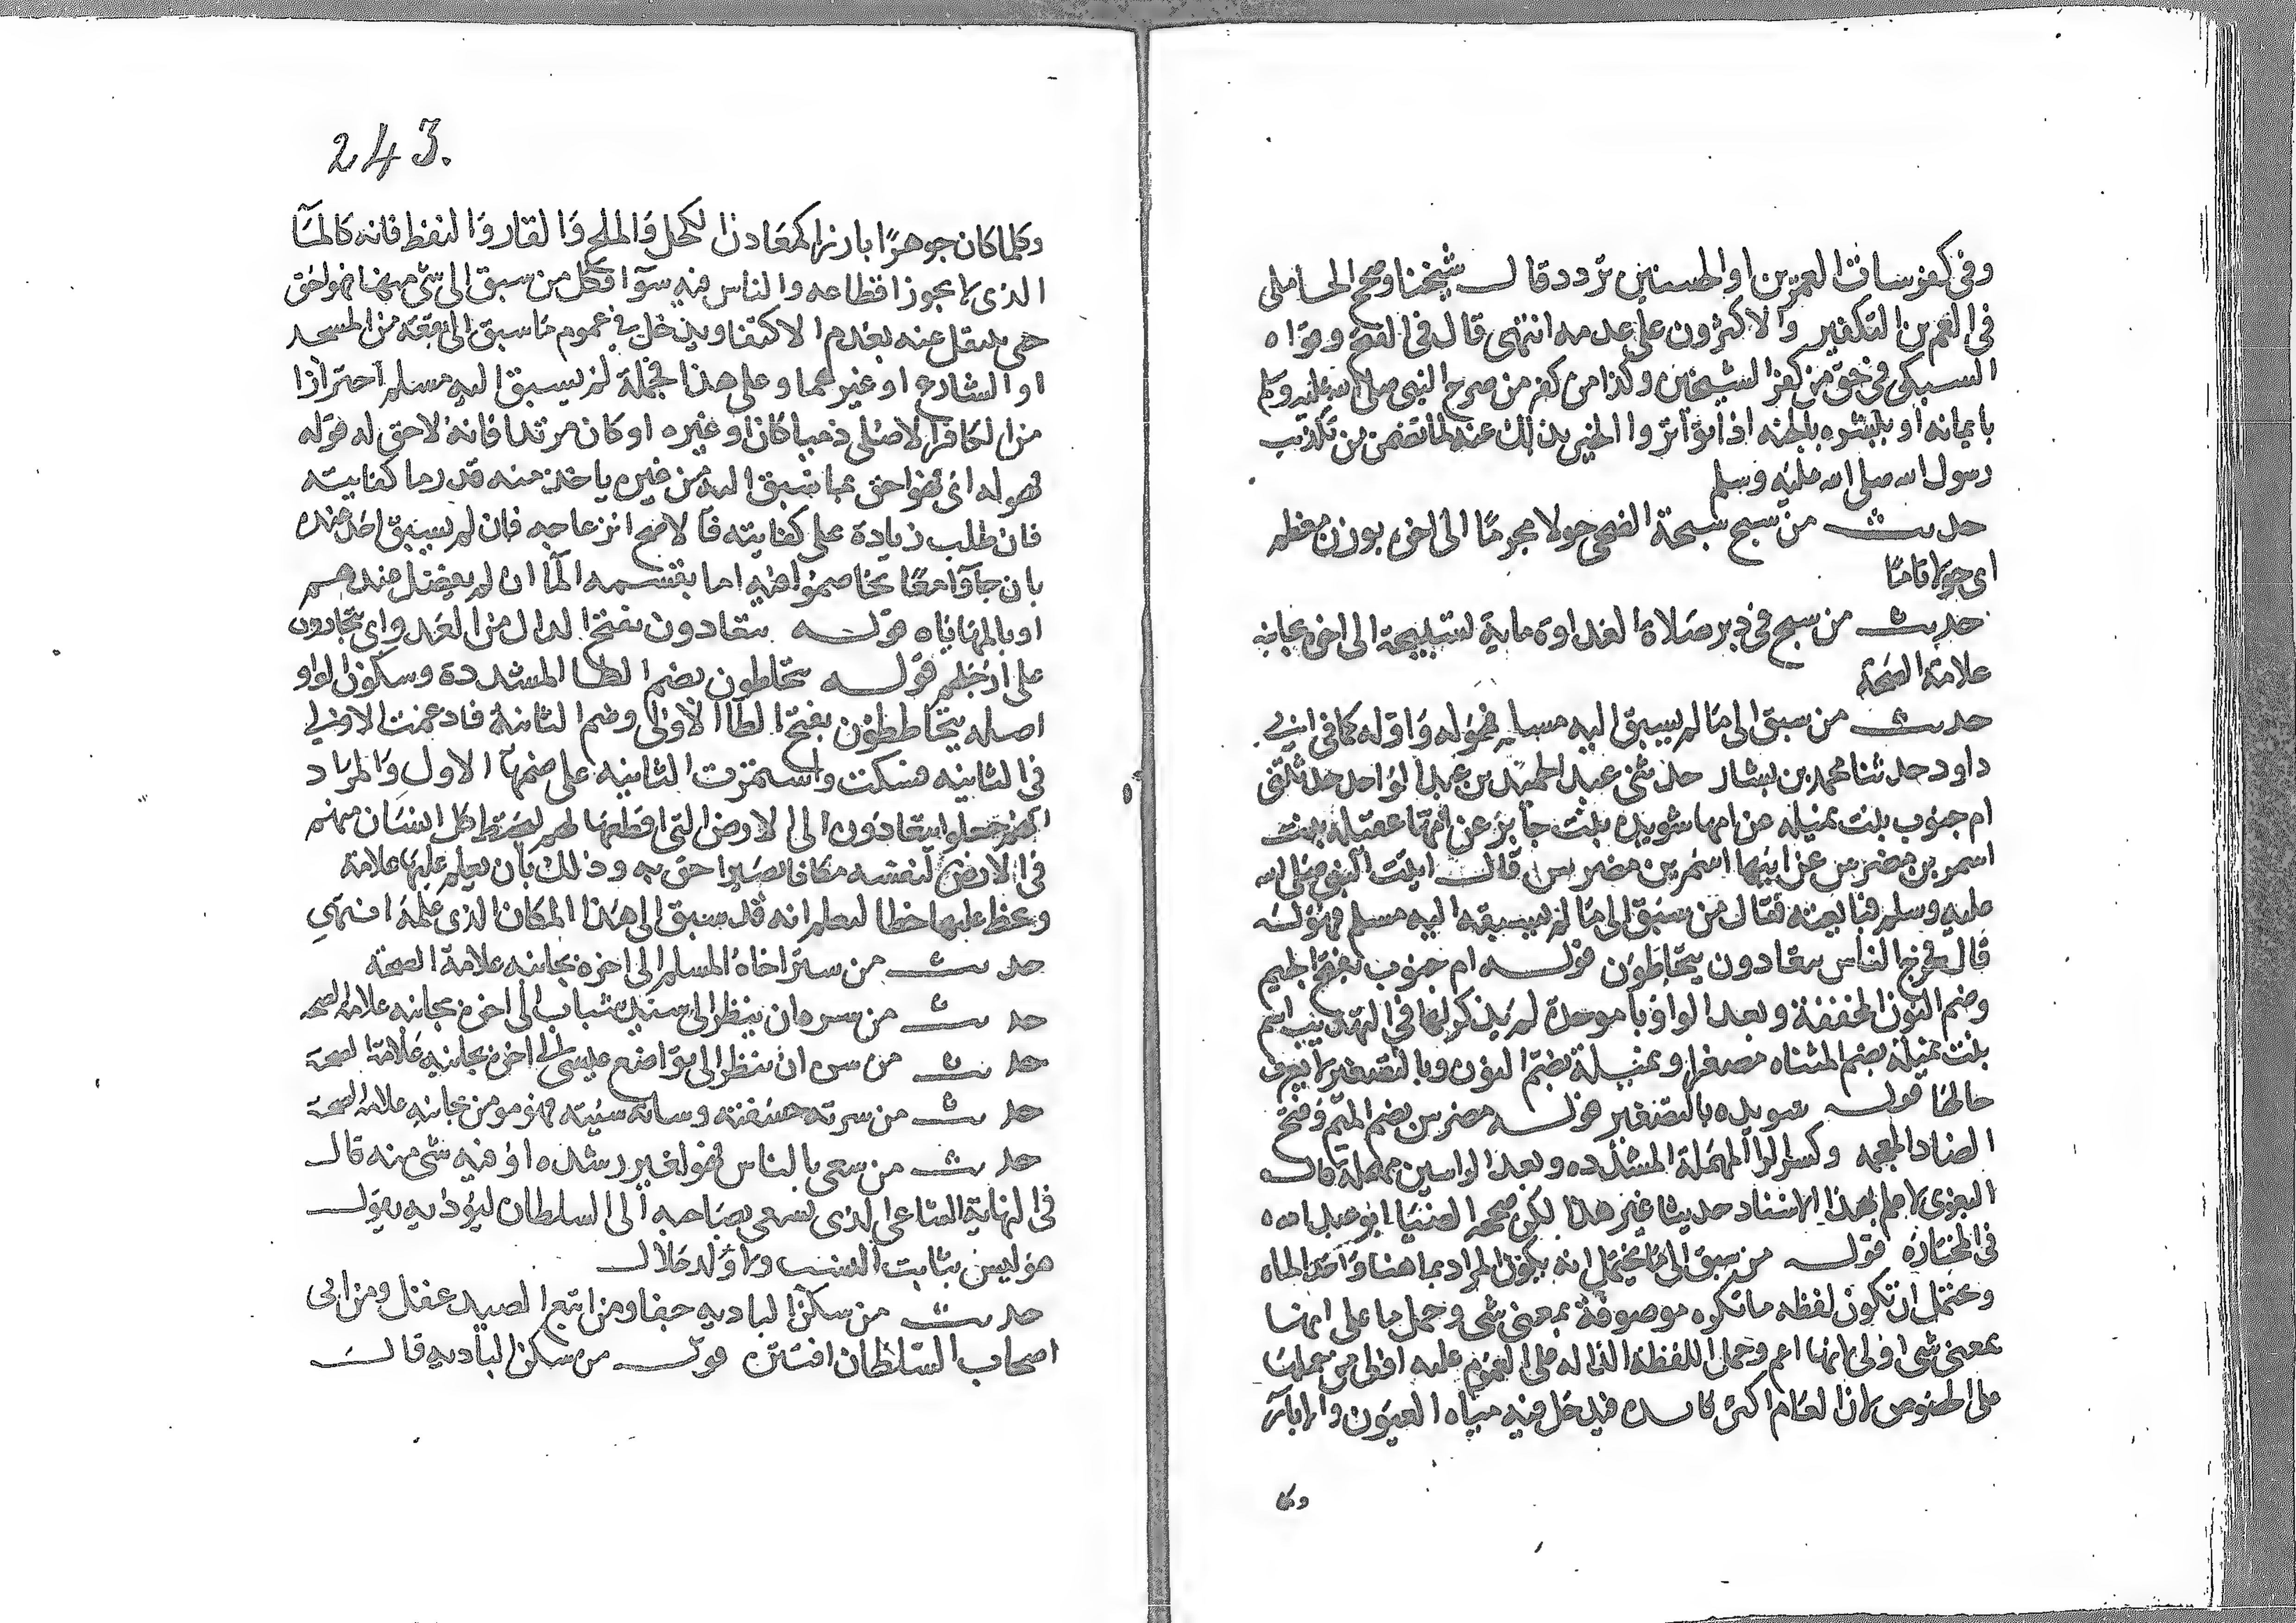 وفى كفر ساب العمرين او الحسنين تردد قال شيخنا وصحح المحاملى
فى العمرين التكفير والاكثرون على عدمه انتهى قال فى الفتح وقواه
السبكى فى حق من كفر الشيخين وكذا من كفر من صرح النبى صلى الله عليه وسلم
بايمانه او بتبشيره بالجنه اذا تواتر الخبر بذلك عنه لما تضمن من تكذيب
رسول الله صلى الله عليه وسلم
حديث من سبح سبحة الضحى حولا مجرما الى اخره بوزن معظم
اى حولا تاما
حديث من سبح فى دبر صلاة الغداوة ماية تسبيحة الى اخره بجانبه
علامة الصحة
حديث من سبق الى ما لم يسبق اليه مسلم فهو له واوله كما فى ابى
داود حدثنا محمد بن بشار حدثنى عبد الحميد بن عبد الواحد حدثتنى
ام جنوب بنت نميله عن امها سويده بنت جابر عن امها عقيله بنت
اسمر بن مضرس عن ابيها اسمر بن مضرس قال اتيت النبى صلى الله
عليه وسلم فبايعته فقال من سبق الى ما لم يسبقه اليه مسلم فهو له
قال فخرج الناس يتعادون يتخاطون قوله ام جنوب بفتح الجيم
وضم النون المخففة وبعد الواو با موحدة لم يذكر لها فى التهذيب اسم
بنت نميلة بضم المثناه مصغرا ونميلة بضم النون وبالتصغير لا يعرف
حالها قوله سويده بالتصغير قوله مضرس بضم الميم وفتح
الضاد المعجمه وكسر الرا المهملة المشدده وبعد الرا سين مهملة قال
البغوى لا اعلم بهذا الاسناد حديثا غير هذا لكن صححه الضيا ابو عبد الله
فى المختاره قوله من سبق الى ما يحتمل انه يكون المراد بما هنا واحد المياه
ويحتمل ان تكون لفظه ما نكره موصوفة بمعنى شى وحمل ما على انها
بمعنى شى اولى لانها اعم وحمل اللفظة الداله على العموم عليه اولى من حملها
على الخصوص لان العام اكثر فايده فيدخل فيه مياه العيون والابار
وكل
243.
وكلما كان جوهرا بارزا كمعادن الكحل والملح والقار والنفط فانه كالما
الذى لا يجوز اقطاعه والناس فيه سوا فكل من سبق الى شى منها فهو احق
حتى ينتقل عنه بعدم الاكتفا ويدخل فى عموم ما سبق الى بقعة من المسجد
او الشارع او غيرهما وعلى هذا فجملة لم يسبق اليه مسلم احترازا
من الكافر الاصلى ذميا كان او غيره او كان مرتدا فانه لا حق له قوله
فهو له اى فهو احق بما سبق اليه من غيره ياخذ منه قدر ما كفايته
فان طلب زيادة على كفايته فالاصح ازعاجه فان لم يسبق احد عنده
بان جاوا معا تخاصموا فيه اما بقسمه الما ان لم يفضل عندهم
او بالمهاياه قوله يتعادون بفتح الدال من العدو اى يتجارون
على ارجلهم قوله يتخاطون بضم الطا المشددة وسكون الواو
اصله يتخاططون بفتح الطا الاولى وضم الثانية فادغمت الاولى
فى الثانيه فسكنت واستمرت الثانيه على ضمها الاول والمراد
انهم جعلوا يتعادون الى الارض التى اقطعها لهم ليختط كل انسان منهم
فى الارض لنفسه مكانا يصير احق به وذلك بان يعلم عليها علامة
وعظ عليها خطا ليعلم انه قد سبق الى هذا المكان الذى علمه انتهى
حديث من ستر اخاه المسلم الى اخره بجانبه علامة الصحة
حديث من سره ان ينظر الى سيدى شباب الى اخره بجانبه علامة الصحه
حديث من سره ان ينظر الى تواضع عيسى الى اخره بجانبه علامة الصحة
حديث من سرته حسنته وسائته سيئته فهو مومن بجانبه علامة الصحة
حديث من سعى بالناس فهو لغير رشده او فيه شى منه قال
فى النهاية الساعى الذى يسعى بصاحبه الى السلطان ليؤذيه يقول
هو ليس بثابت النسب ولا ولد حلال
حديث من سكن الباديه جفا ومن اتبع الصيد غفل ومن اتى
اصحاب السلطان افتتن قوله من سكن الباديه قال